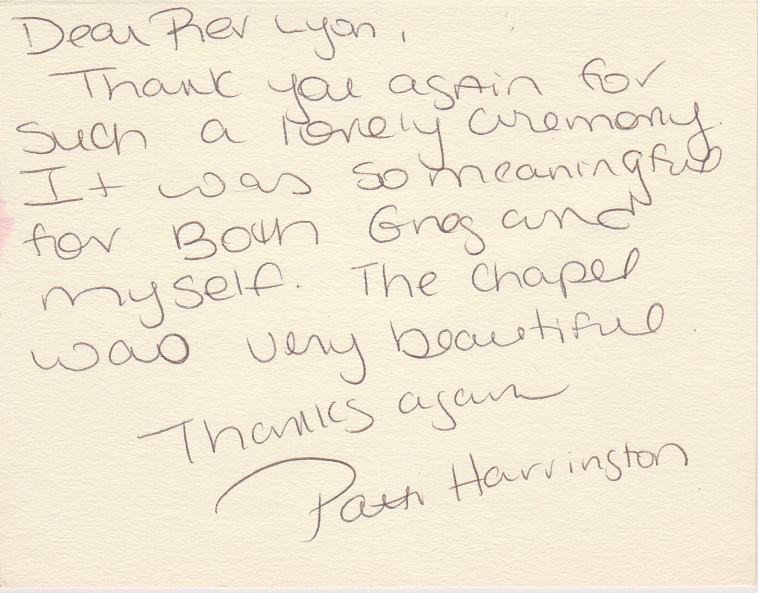 Dear Rev Lyon,
Thank you again for
such a lovely ceremony.
It was so meaningful
for Both Greg and
myself. The Chapel
was very beautiful.
Thanks again
Patti Harrington